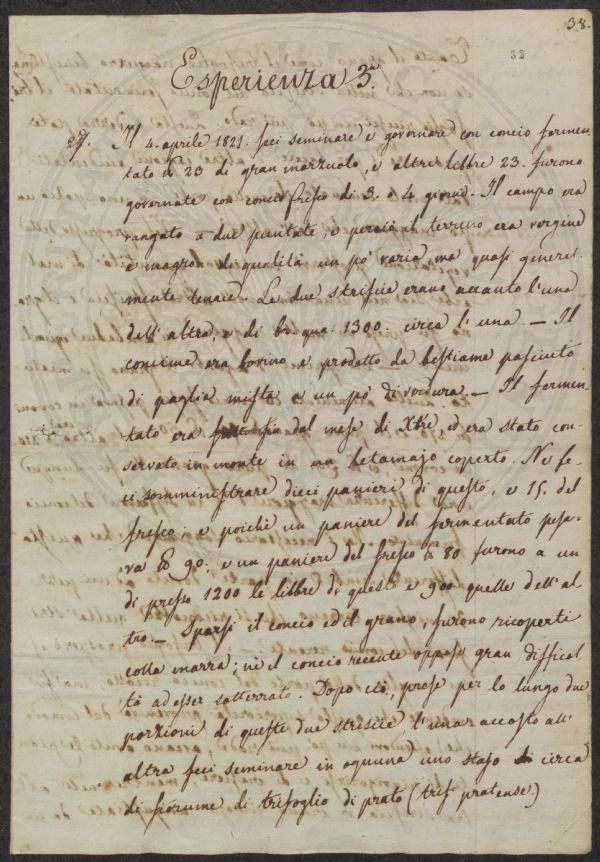 38.
33
Esperienza 3.a
27. Il 4. aprile 1821. feci seminare e governare con concio fermen
tato ℔ 23 di gran marzuolo, e altre libbre 23. furono
governate con concio fresco di 3. o 4 giorni. Il campo era
vangato a due puntate, e perciò il terreno era vergine
e magro di qualità un po' varia, ma quasi general
mente tenace. Le due striscie erano accanto l'una
dell'altra, e di br. qua. 1300. circa l'una. — Il
concime era bovino e prodotto da bestiame pasciuto
di paglia mista a un po' di verdura. — Il fermen
tato era fin dal mese di Xbre, ed era stato con
servato in monte in un letamajo coperto. Ne fe
ci somministrare dieci panieri di questo, e 15. del
fresco: e poichè un paniere del fermentato pesa
va ℔ 90: e un paniere del fresco ℔ 80 furono a un
di presso 1200 le libbre di questo e 900 quelle dell'al
tro. — Sparsi il concio ed il grano, furono ricoperti
colla marra; nè il concio recente oppose gran difficol
tà ad esser sotterrato. Dopo ciò, prese per lo lungo due
porzioni di queste due striscie, l'una accosto all'
altra feci seminare in ognuna uno stajo circa
di fiorume di trifoglio di prato (trif: pratense)